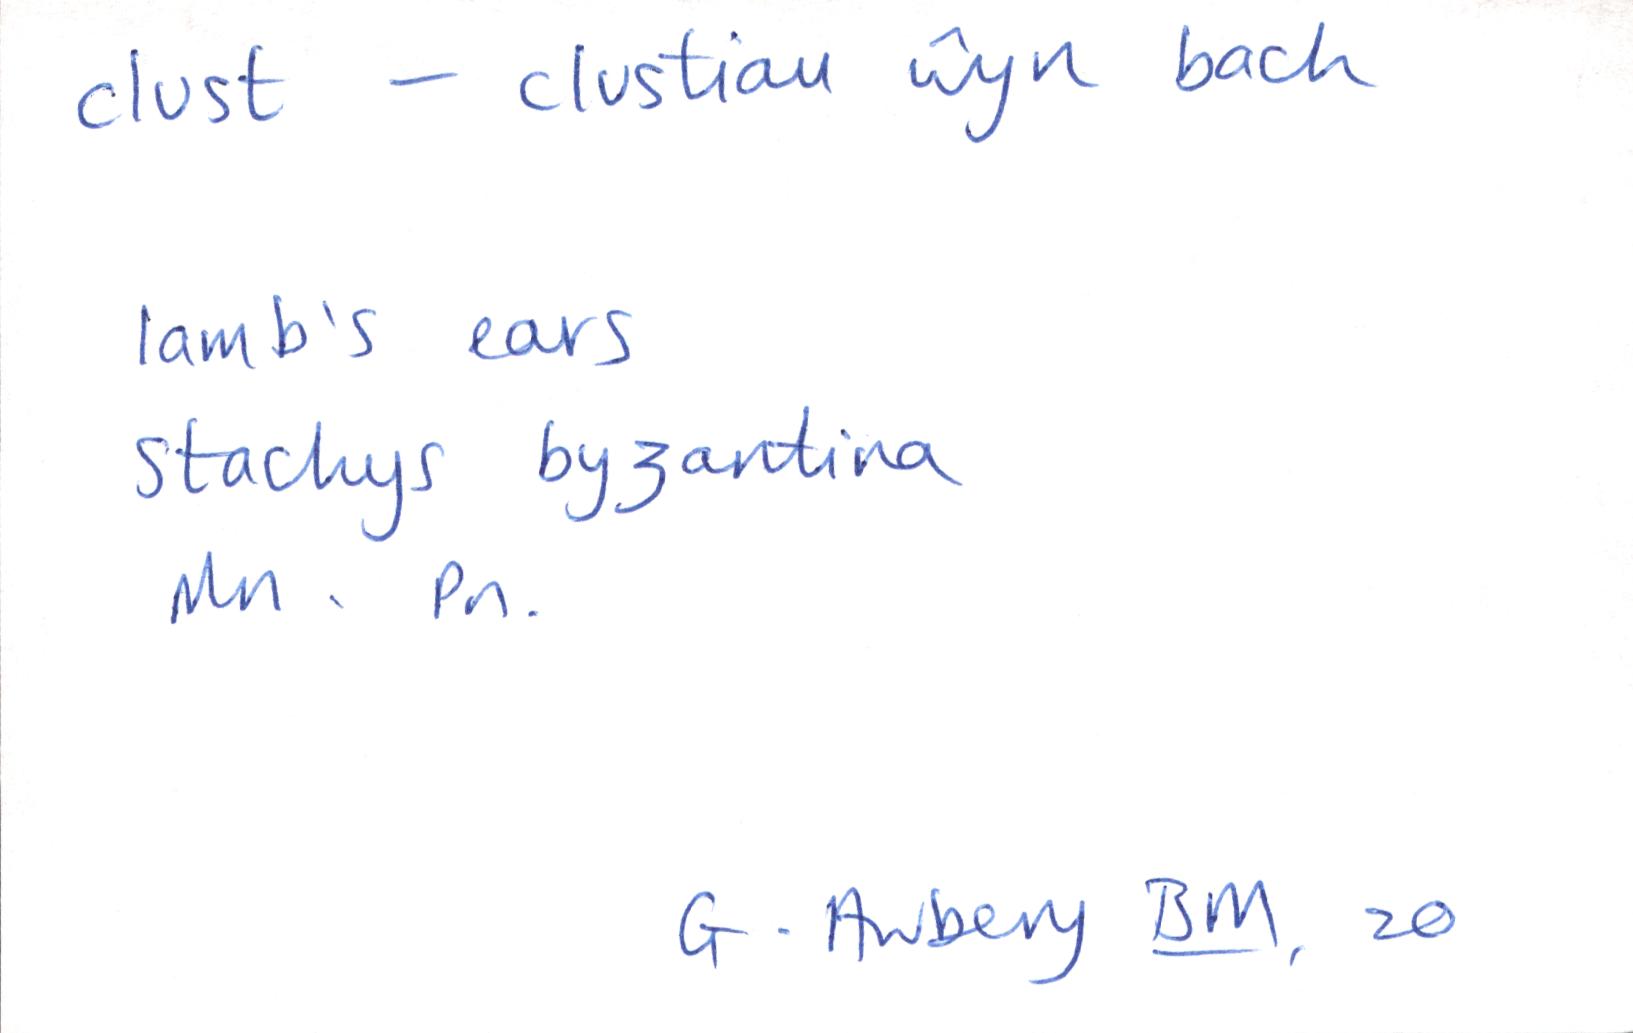 clust – clustiau ŵyn bach
lamb's ears
stachys byzantina
Mn. Pn.
G. Awbery BM, 20